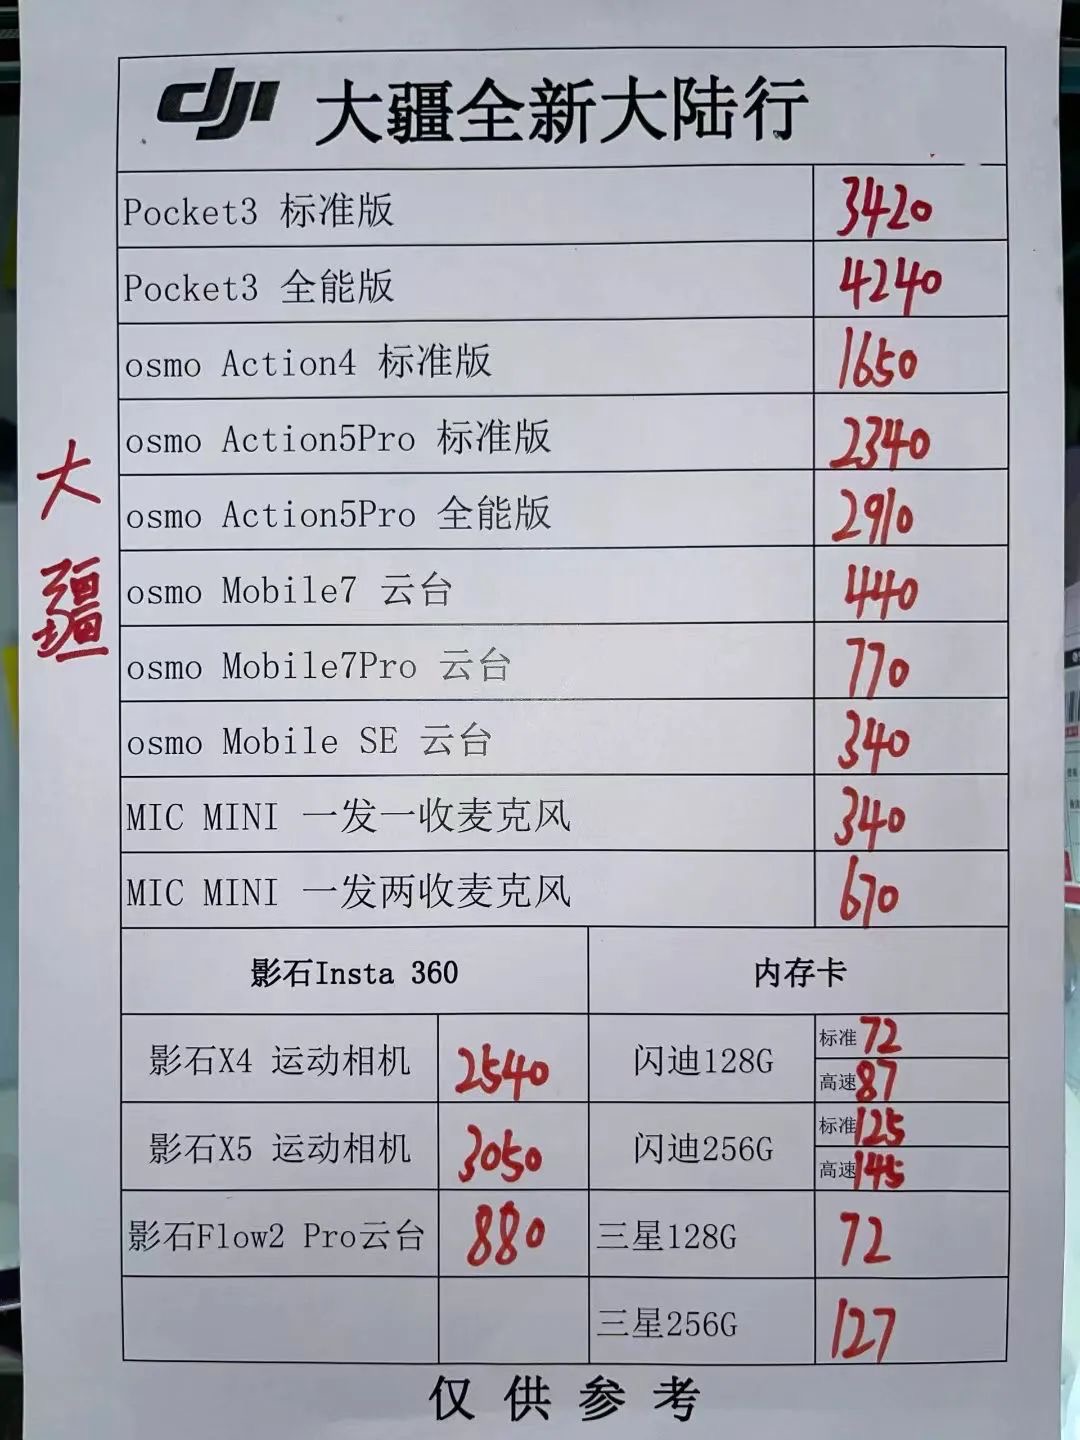 dji 大疆全新大陆行
Pocket3 标准版 3420
Pocket3 全能版 4240
osmo Action4 标准版 1650
osmo Action5Pro 标准版 2340
osmo Action5Pro 全能版 2910
osmo Mobile7 云台 440
osmo Mobile7Pro 云台 770
osmo Mobile SE 云台 340
MIC MINI 一发一收麦克风 340
MIC MINI 一发两收麦克风 670
大
疆
影石Insta 360 内存卡
影石X4 运动相机 2540 闪迪128G 标准 72
高速 87
影石X5 运动相机 3050 闪迪256G 标准 125
高速 145
影石Flow2 Pro云台 880 三星128G 72
三星256G 127
仅供参考